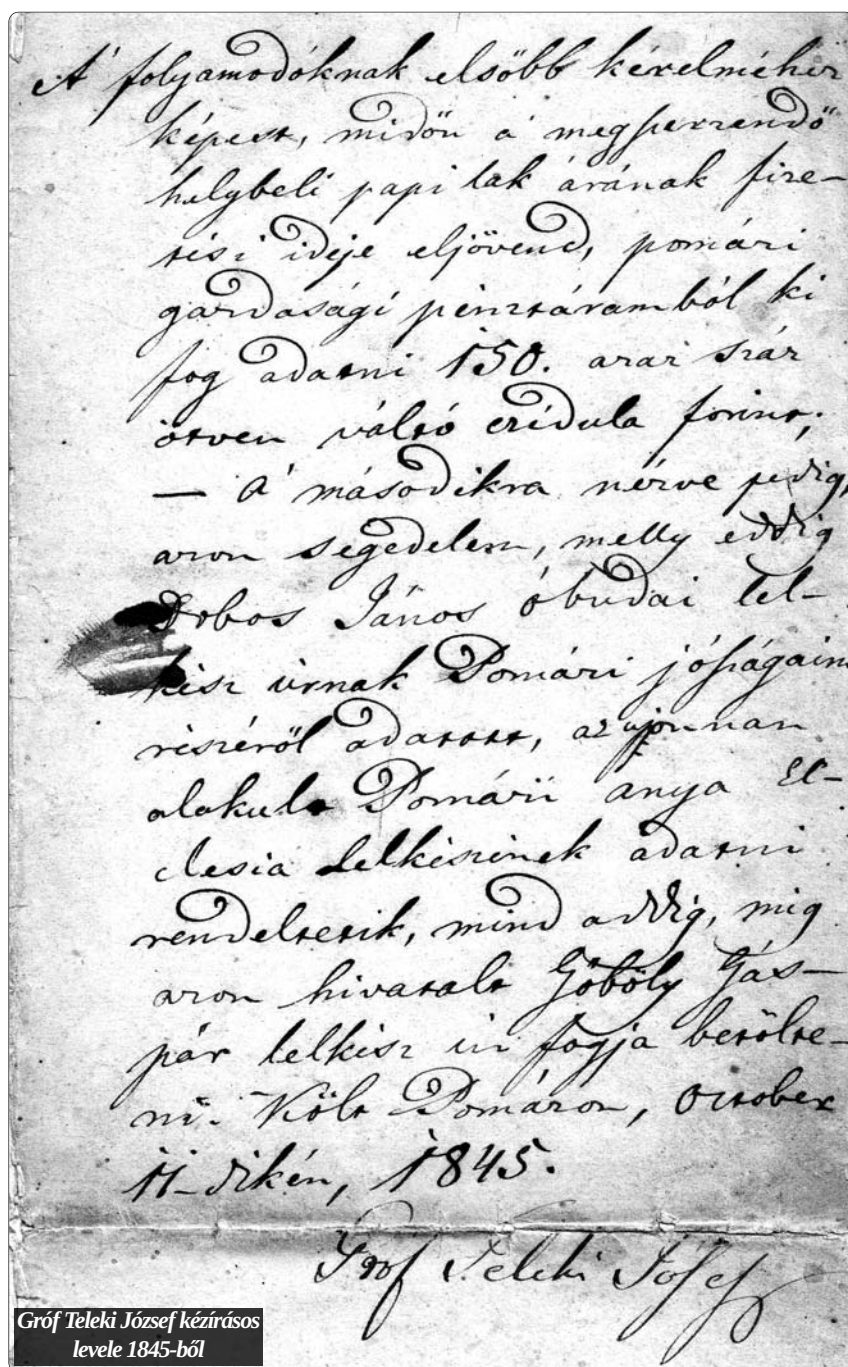 A' folyamodóknak elsőbb kérelméhez
képest, midőn a' megszerzendő
helybeli papi lak árának fize-
tési ideje eljövend, pomázi
gazdasági pénztáramból ki
fog adatni 150. azaz száz
ötven váltó czédula forint;
— A' másodikra nézve pedig,
azon segedelem, melly eddig
Dobos János óbudai lel-
kész úrnak Pomázi jószágaim
részéről adatott, az ujonnan
alakult Pomázi anya Ek-
clesia lelkészének adatni
rendeltetik, mind addig, míg
azon hivatalt Göböly Gás-
pár lelkész úr fogja betölte-
ni. Költ Pomázon, October
11-dikén, 1845.
Gróf Teleki József
Gróf Teleki József kézírásos
levele 1845-ből